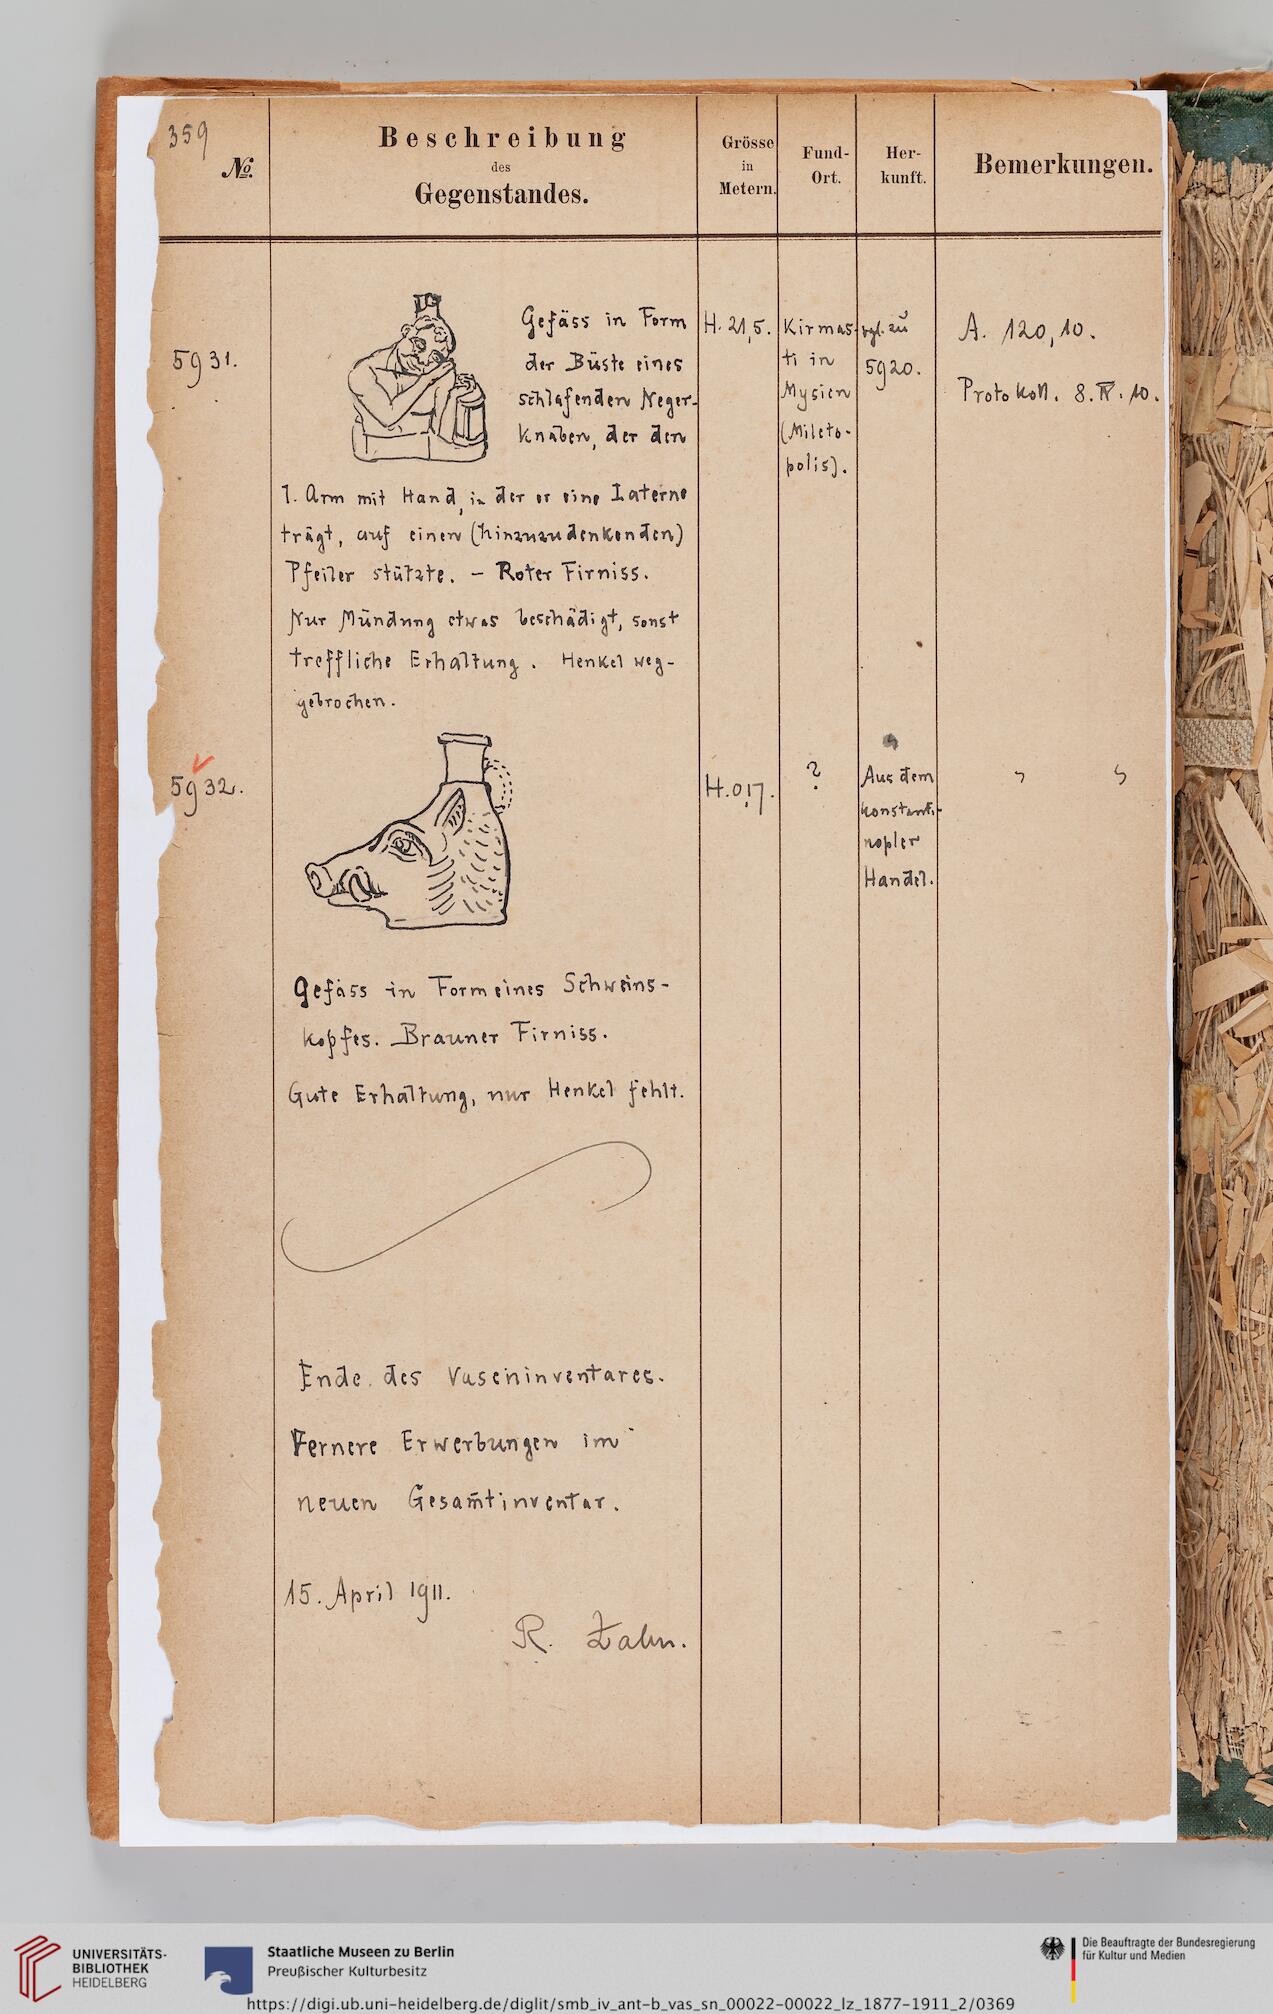 359
No.
Beschreibung
des
Gegenstandes.
Grösse
in
Metern.
Fund-
Ort.
Her-
kunft.
Bemerkungen.
5931.
Gefäss in Form
der Büste eines
schlafenden Neger-
knaben, der den
l. Arm mit Hand, in der er eine Laterne
trägt, auf einen (hinzuzudenkenden)
Pfeiler stützte. – Roter Firniss.
Nur Mündung etwas beschädigt, sonst
treffliche Erhaltung. Henkel weg-
gebrochen.
H. 21,5.
Kirmas-
ti in
Mysien
(Mileto-
polis).
vgl. zu
5920.
A. 120,10.
Protokoll. 8. IV. 10.
5932.
H. 0,17.
?
Aus dem
Konstanti-
nopler
Handel.
„ „
Gefäss in Form eines Schweins-
kopfes. Brauner Firniss.
Gute Erhaltung, nur Henkel fehlt.
Ende des Vaseninventares.
Fernere Erwerbungen im
neuen Gesam̄tinventar.
15. April 1911.
R. Zahn.
UNIVERSITÄTS-
BIBLIOTHEK
HEIDELBERG
Staatliche Museen zu Berlin
Preußischer Kulturbesitz
Die Beauftragte der Bundesregierung
für Kultur und Medien
https://digi.ub.uni-heidelberg.de/diglit/smb_iv_ant-b_vas_sn_00022-00022_lz_1877-1911_2/0369